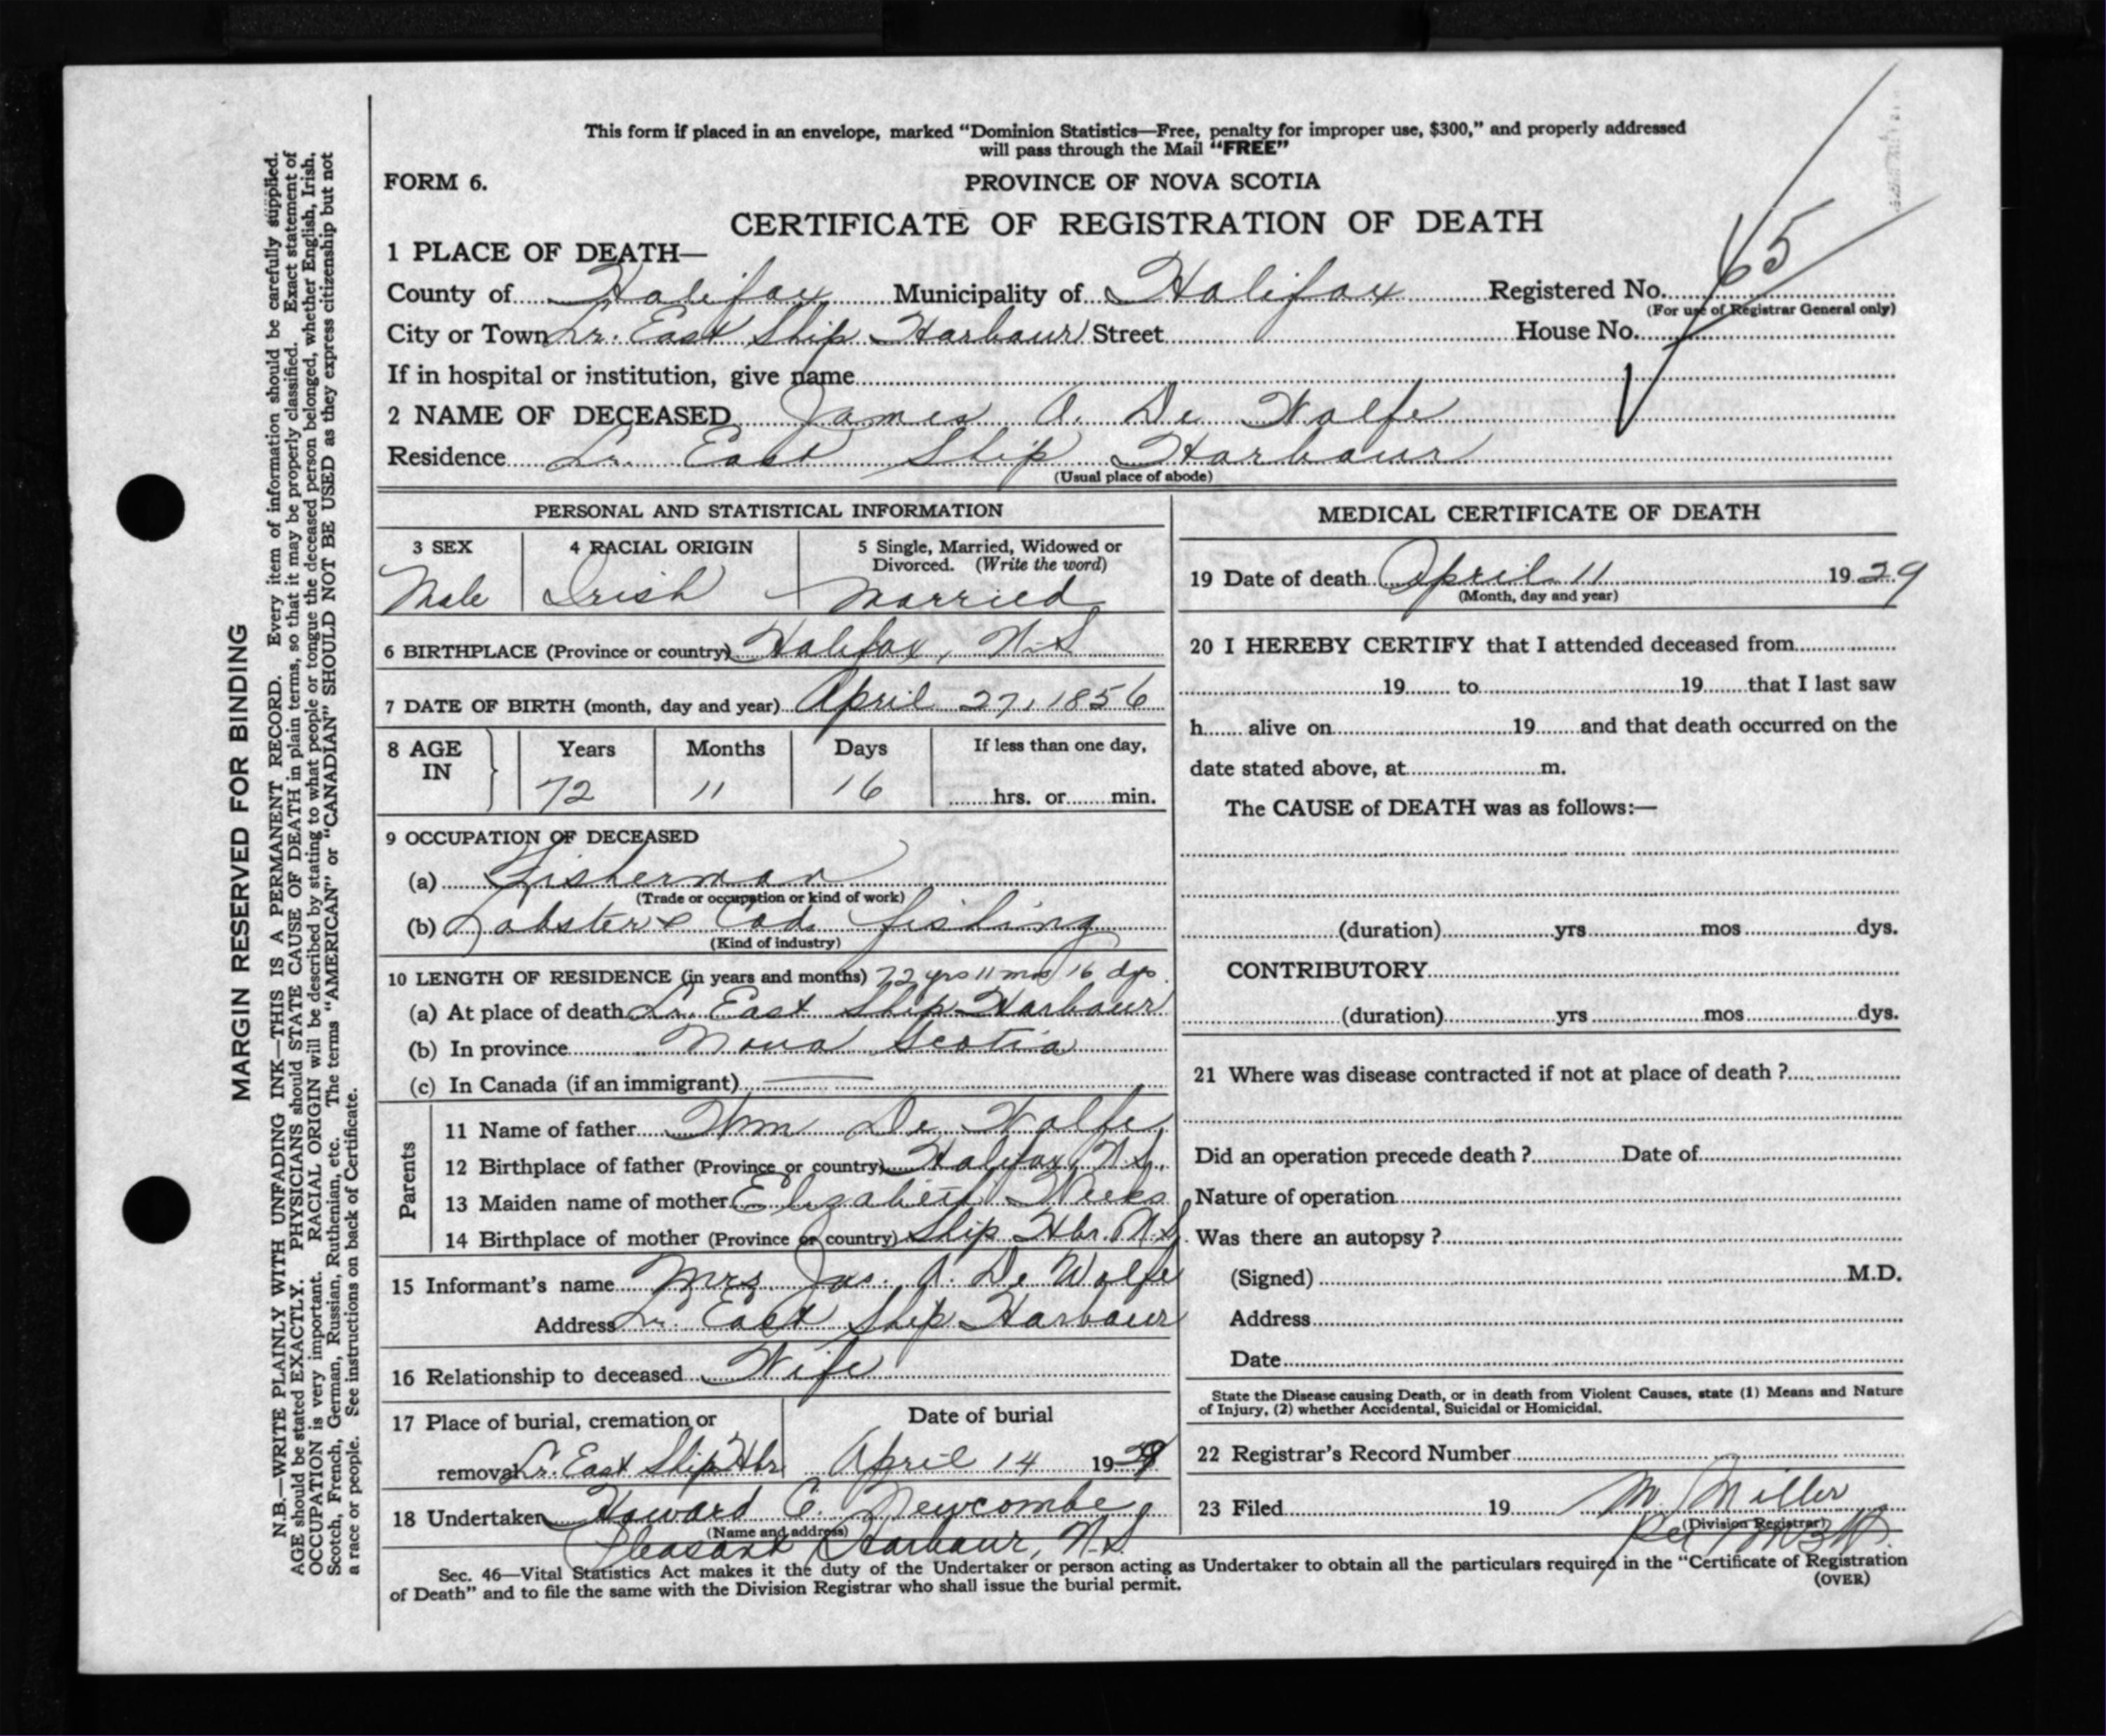 This form if placed in an envelope, marked “Dominion Statistics—Free, penalty for improper use, $300,” and properly addressed
will pass through the Mail “FREE”
FORM 6.
PROVINCE OF NOVA SCOTIA
CERTIFICATE OF REGISTRATION OF DEATH
1 PLACE OF DEATH—
County of Halifax Municipality of Halifax Registered No. 65
(For use of Registrar General only)
City or Town Lr. East Ship Harbour Street House No.
If in hospital or institution, give name
2 NAME OF DECEASED James A. De Wolfe
Residence Lr. East Ship Harbour
(Usual place of abode)
PERSONAL AND STATISTICAL INFORMATION
3 SEX
Male
4 RACIAL ORIGIN
Irish
5 Single, Married, Widowed or
Divorced. (Write the word)
Married
6 BIRTHPLACE (Province or country) Halifax, N.S
7 DATE OF BIRTH (month, day and year) April 27, 1856
8 AGE
IN
Years
72
Months
11
Days
16
If less than one day,
hrs. or min.
9 OCCUPATION OF DECEASED
(a) Fisherman
(Trade or occupation or kind of work)
(b) Lobster & Cod fishing
(Kind of industry)
10 LENGTH OF RESIDENCE (in years and months) 72 yrs 11 mos 16 dys.
(a) At place of death Lr. East Ship Harbour
(b) In province Nova Scotia
(c) In Canada (if an immigrant) —
Parents
11 Name of father Wm De Wolfe
12 Birthplace of father (Province or country) Halifax, N.S.
13 Maiden name of mother Elizabeth Weeks
14 Birthplace of mother (Province or country) Ship Hbr. N.S.
15 Informant's name Mrs Jas. A. De Wolfe
Address Lr. East Ship Harbour
16 Relationship to deceased Wife
17 Place of burial, cremation or
removal Lr. East Ship Hbr.
Date of burial
April 14 1929
18 Undertaken Howard C. Newcombe
(Name and address)
Pleasant Harbour, N.S
MEDICAL CERTIFICATE OF DEATH
19 Date of death April 11 1929
(Month, day and year)
20 I HEREBY CERTIFY that I attended deceased from
19 to 19 that I last saw
h alive on 19 and that death occurred on the
date stated above, at m.
The CAUSE of DEATH was as follows:—
(duration) yrs mos dys.
CONTRIBUTORY
(duration) yrs mos dys.
21 Where was disease contracted if not at place of death ?
Did an operation precede death ? Date of
Nature of operation
Was there an autopsy ?
(Signed) M.D.
Address
Date
State the Disease causing Death, or in death from Violent Causes, state (1) Means and Nature
of Injury, (2) whether Accidental, Suicidal or Homicidal.
22 Registrar's Record Number
23 Filed 19 M. Miller
(Division Registrar)
Sec. 46—Vital Statistics Act makes it the duty of the Undertaker or person acting as Undertaker to obtain all the particulars required in the “Certificate of Registration
of Death” and to file the same with the Division Registrar who shall issue the burial permit.
(OVER)
MARGIN RESERVED FOR BINDING
N.B.—WRITE PLAINLY WITH UNFADING INK—THIS IS A PERMANENT RECORD. Every item of information should be carefully supplied.
AGE should be stated EXACTLY. PHYSICIANS should STATE CAUSE OF DEATH in plain terms, so that it may be properly classified. Exact statement of
OCCUPATION is very important. RACIAL ORIGIN will be described by stating to what people or tongue the deceased person belonged, whether English, Irish,
Scotch, French, German, Russian, Ruthenian, etc. The terms “AMERICAN” or “CANADIAN” SHOULD NOT BE USED as they express citizenship but not
a race or people. See instructions on back of Certificate.